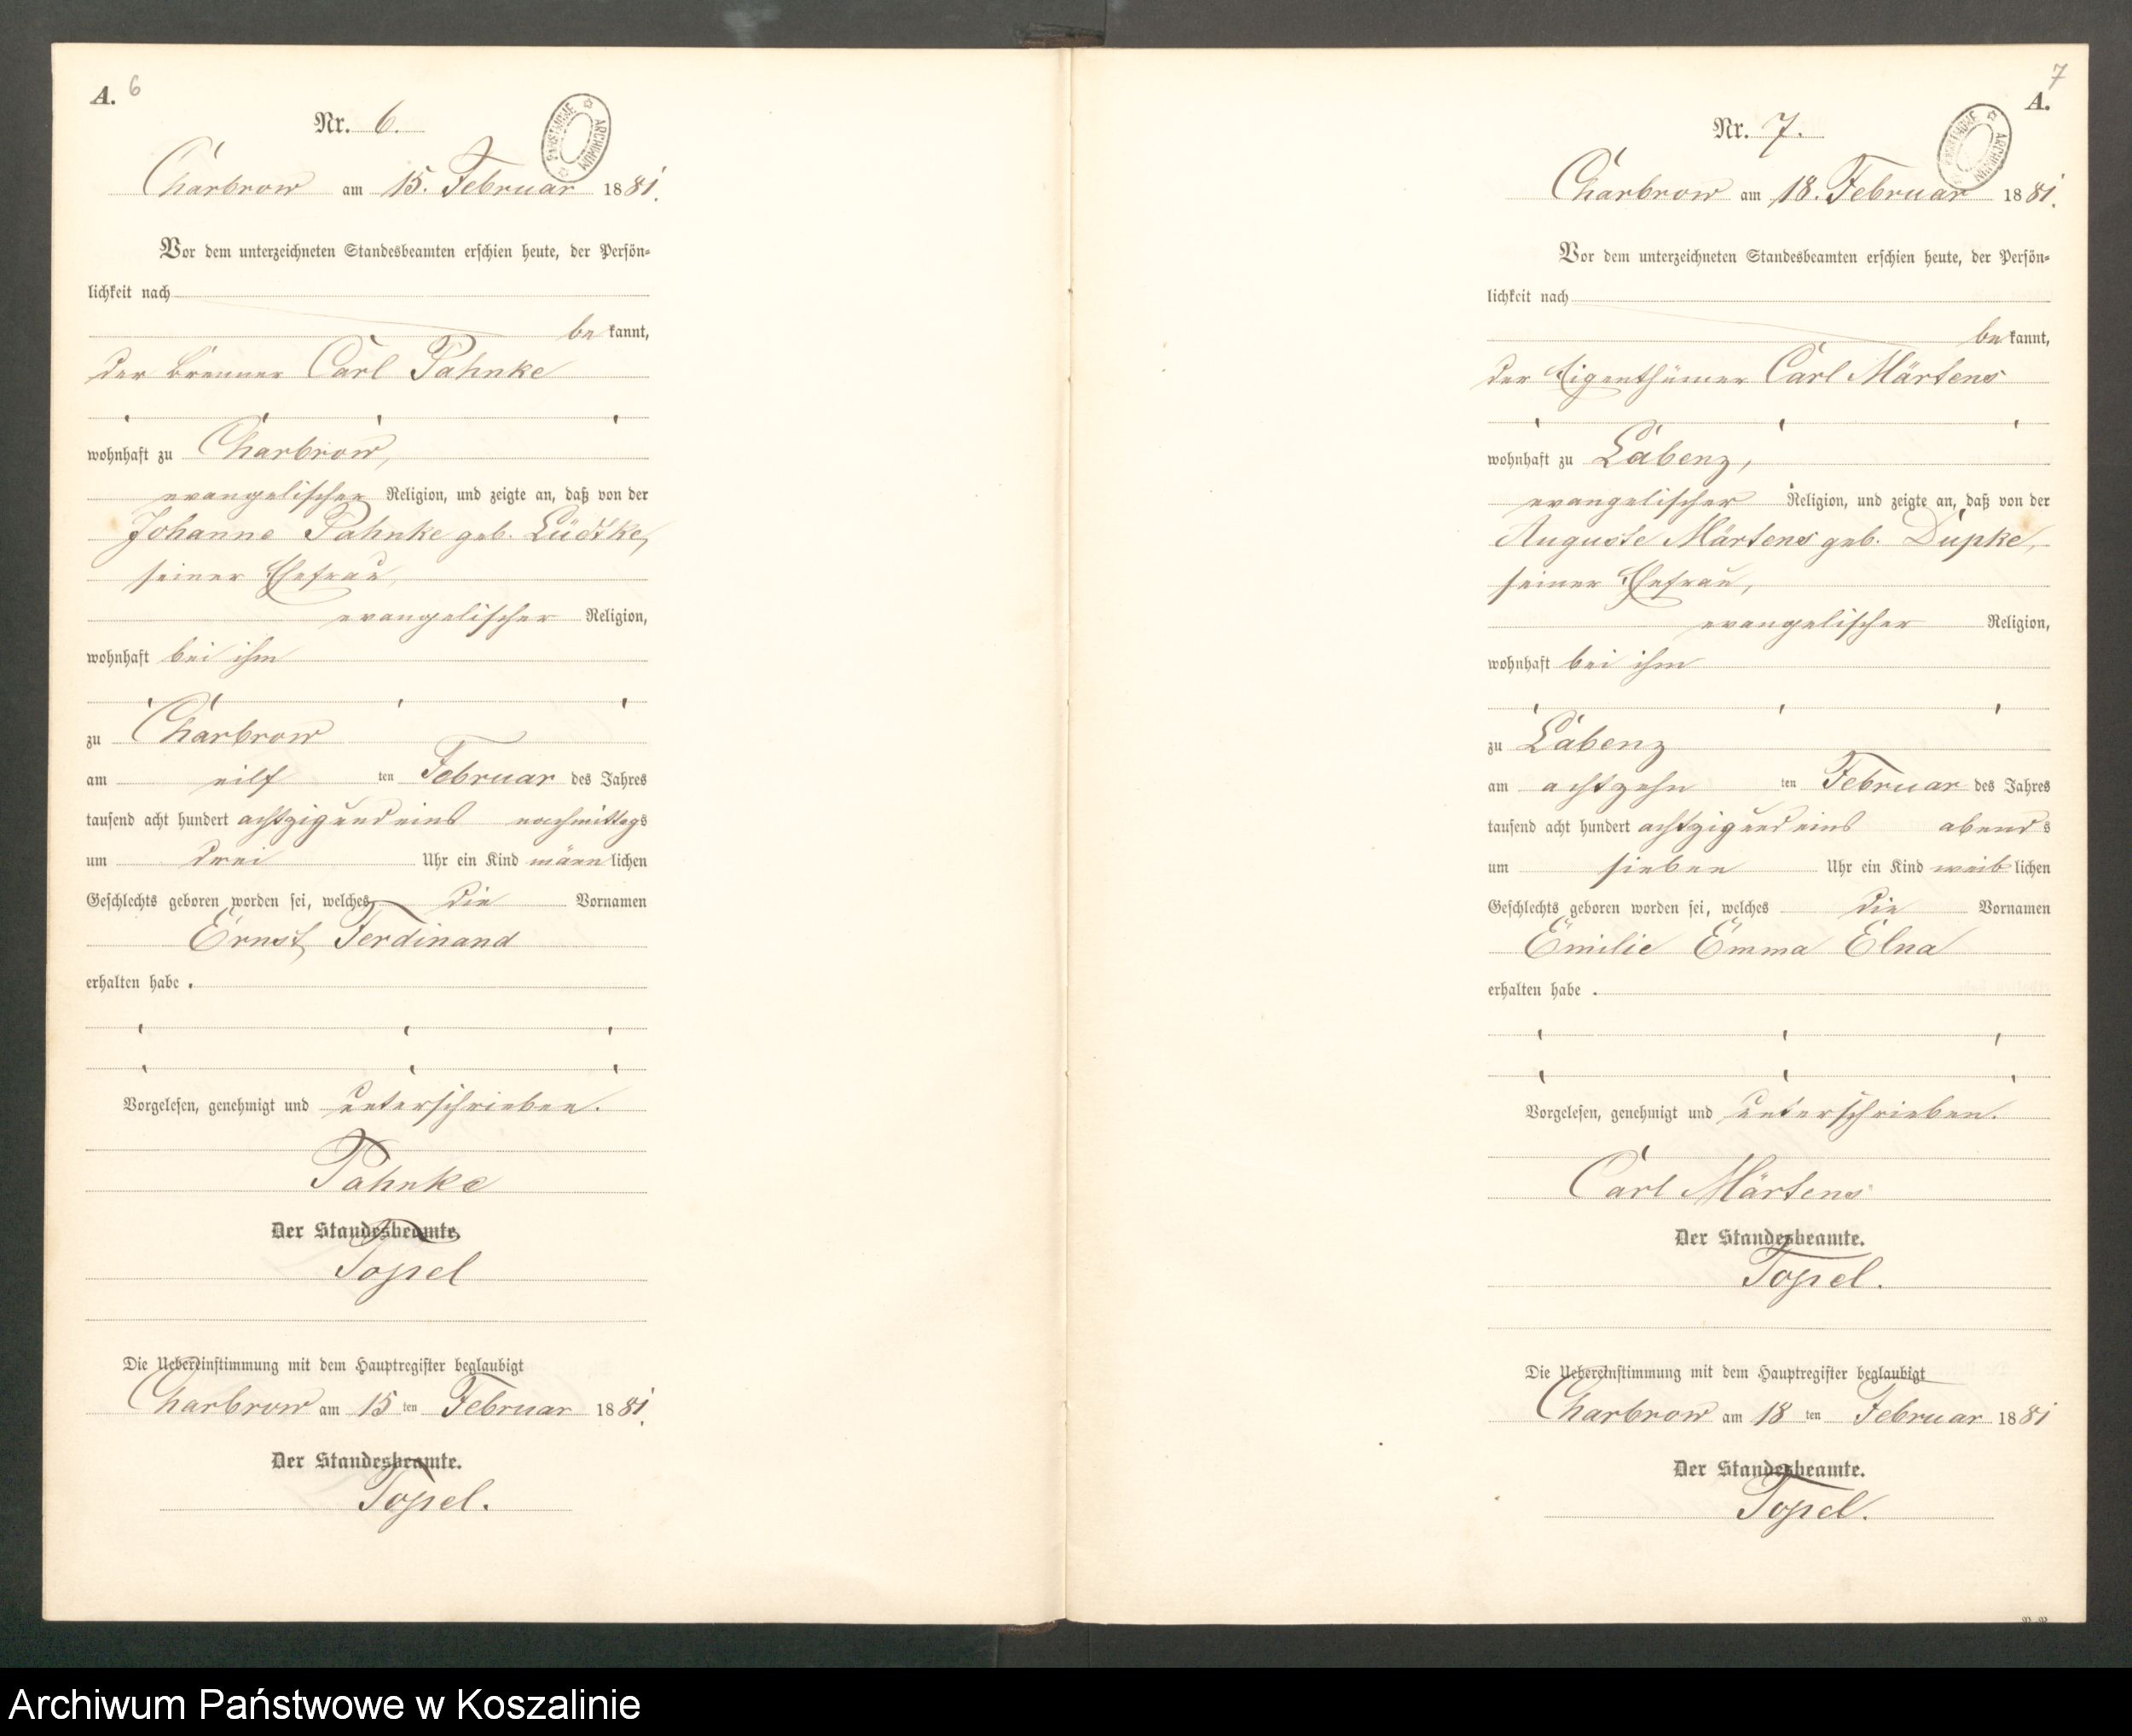 A. 6
Nr. 6.
ARCHIWUM PAŃSTWOWE
Charbrow am 15. Februar 1881.
Vor dem unterzeichneten Standesbeamten erschien heute, der Persön-
lichkeit nach
be kannt,
der Brenner Carl Pahnke
wohnhaft zu Charbrow,
evangelischer Religion, und zeigte an, daß von der
Johanne Pahnke geb. Lüdtke,
seiner Ehefrau,
evangelischer Religion,
wohnhaft bei ihm
zu Charbrow
am eilf ten Februar des Jahres
tausend acht hundert achtzig und eins nachmittags
um drei Uhr ein Kind männ lichen
Geschlechts geboren worden sei, welches die Vornamen
Ernst, Ferdinand
erhalten habe.
Vorgelesen, genehmigt und unterschrieben.
Pahnke
Der Standesbeamte.
Topel
Die Uebereinstimmung mit dem Hauptregister beglaubigt
Charbrow am 15 ten Februar 1881.
Der Standesbeamte.
Topel.
7
A.
Nr. 7.
ARCHIWUM PAŃSTWOWE
Charbrow am 18. Februar 1881.
Vor dem unterzeichneten Standesbeamten erschien heute, der Persön-
lichkeit nach
be kannt,
der Eigenthümer Carl Märtens
wohnhaft zu Labenz,
evangelischer Religion, und zeigte an, daß von der
Auguste Märtens geb. Dupke,
seiner Ehefrau,
evangelischer Religion,
wohnhaft bei ihm
zu Labenz
am achtzehn ten Februar des Jahres
tausend acht hundert achtzig und eins abend s
um sieben Uhr ein Kind weib lichen
Geschlechts geboren worden sei, welches die Vornamen
Emilie Emma Elna
erhalten habe.
Vorgelesen, genehmigt und unterschrieben.
Carl Märtens
Der Standesbeamte.
Topel.
Die Uebereinstimmung mit dem Hauptregister beglaubigt
Charbrow am 18 ten Februar 1881
Der Standesbeamte.
Topel.
Archiwum Państwowe w Koszalinie